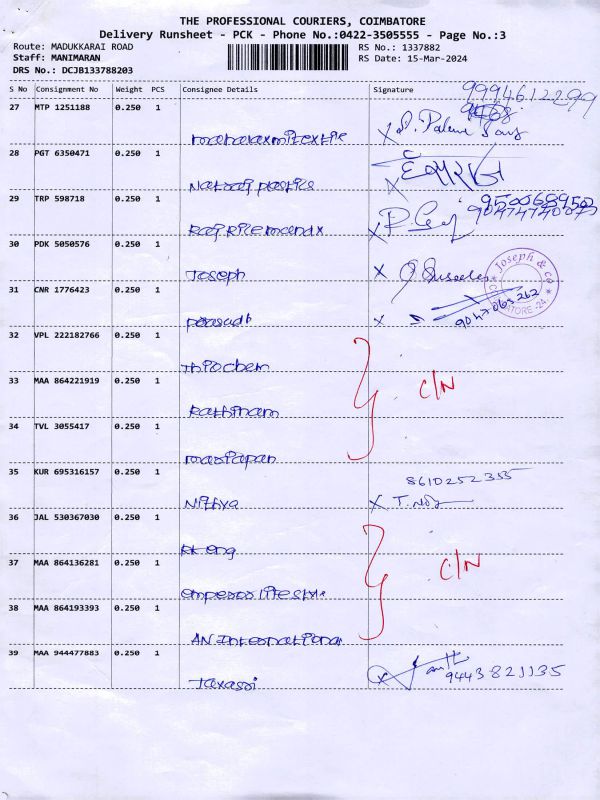 THE PROFESSIONAL COURIERS, COIMBATORE
Delivery Runsheet - PCK - Phone No.:0422-3505555 - Page No.:3
Route: MADUKKARAI ROAD
Staff: MANIMARAN
DRS No.: DCJB133788203
RS No.: 1337882
RS Date: 15-Mar-2024
S No Consignment No Weight PCS Consignee Details Signature
9994612299
27 MTP 1251188 0.250 1
28 PGT 6350471 0.250 1
29 TRP 598718 0.250 1
9500689502
9047474007
30 PDK 5050576 0.250 1
Joseph
Joseph & co
COIMBATORE -24
31 CNR 1776423 0.250 1
9047063262
prasadh
32 VPL 222182766 0.250 1
Thiochem
33 MAA 864221919 0.250 1
C/N
Rathinam
34 TVL 3055417 0.250 1
mariapan
35 KUR 695316157 0.250 1
8610252355
Nithya
36 JAL 530367030 0.250 1
37 MAA 864136281 0.250 1
C/N
emperor lifestyle
38 MAA 864193393 0.250 1
AN International
39 MAA 944477883 0.250 1
9443821135
Jayasri